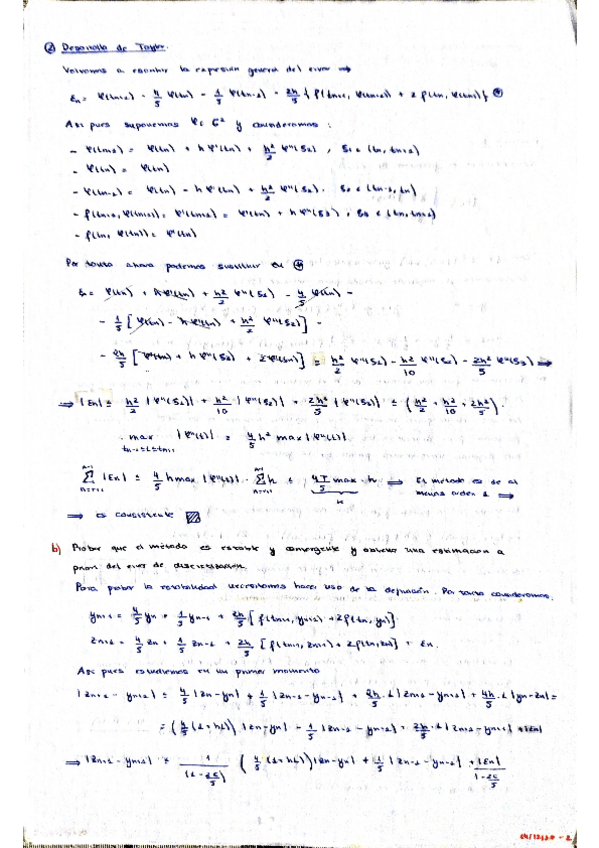 ② Desarrollo de Taylor.
Volvamos a escribir la expresión general del error ⟹
εn = φ(tn+1) - 4/5 φ(tn) - 1/5 φ(tn-1) - 2h/5 { f(tn+1, φ(tn+1)) + 2 f(tn, φ(tn)) } ⊛
Así pues suponemos φ ∈ C² y consideramos :
- φ(tn+1) = φ(tn) + h φ'(tn) + h²/2 φ''(S1) , S1 ∈ (tn, tn+1)
- φ(tn) = φ(tn)
- φ(tn-1) = φ(tn) - h φ'(tn) + h²/2 φ''(S2). S2 ∈ (tn-1, tn)
- f(tn+1, φ(tn+1)) = φ'(tn+1) = φ'(tn) + h φ''(S3) , S3 ∈ (tn, tn+1)
- f(tn, φ(tn)) = φ'(tn)
Por tanto ahora podemos sustituir en ⊛
εn = φ(tn) + h φ'(tn) + h²/2 φ''(S1) - 4/5 φ(tn) -
- 1/5 [ φ(tn) - h φ'(tn) + h²/2 φ''(S2) ] -
- 2h/5 [ φ'(tn) + h φ''(S3) + 2φ'(tn) ] = h²/2 φ''(S1) - h²/10 φ''(S2) - 2h²/5 φ''(S3) ⟹
⟹ |εn| ≤ h²/2 |φ''(S1)| + h²/10 |φ''(S2)| + 2h²/5 |φ''(S3)| ≤ ( h²/2 + h²/10 + 2h²/5 ).
. max |φ''(t)| = 4/5 h² max |φ''(t)|
tn-1 ≤ t ≤ tn+1
Σ |εn| ≤ 4/5 h max |φ''(t)| . Σ h ≤ 4T/5 max . h ⟹ El método es de al menos orden 1 ⟹
⟹ es consistente
b) Probar que el método es estable y convergente y obtener una estimación a
priori del error de discretización.
Para probar la estabilidad necesitamos hacer uso de la definición. Por tanto consideramos.
yn+1 = 4/5 yn + 1/5 yn-1 + 2h/5 [ f(tn+1, yn+1) + 2f(tn, yn) ]
zn+1 = 4/5 zn + 1/5 zn-1 + 2h/5 [ f(tn+1, zn+1) + 2f(tn, zn) ] + εn.
Así pues estudiemos en un primer momento
|zn+1 - yn+1| ≤ 4/5 |zn - yn| + 1/5 |zn-1 - yn-1| + 2h/5 . L |zn+1 - yn+1| + 4h/5 . L |yn - zn| =